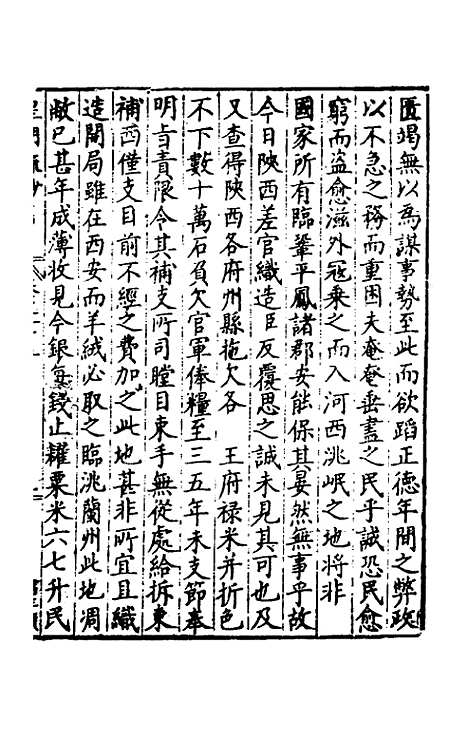 匱竭無以爲謀事勢至此而欲蹈正德年間之弊政
以不急之務而重困夫奄奄垂盡之民乎誠恐民愈
窮而盜愈滋外寇乗之而入河西洮岷之地將非
國家所有臨鞏平鳳諸郡安能保其晏然無事乎故
今日陝西差官織造臣反覆思之誠未見其可也及
又查得陝西各府州縣拖欠各 王府禄米并折色
不下數十萬石負欠官軍俸糧至三五年未支節奉
明旨責限令其補支所司瞠目束手無從處給拆東
補西僅支目前不經之費加之此地甚非所宜且織
造開局雖在西安而羊絨必取之臨洮蘭州此地凋
敝已甚年成薄收見今銀每錢止糴粟米六七升民